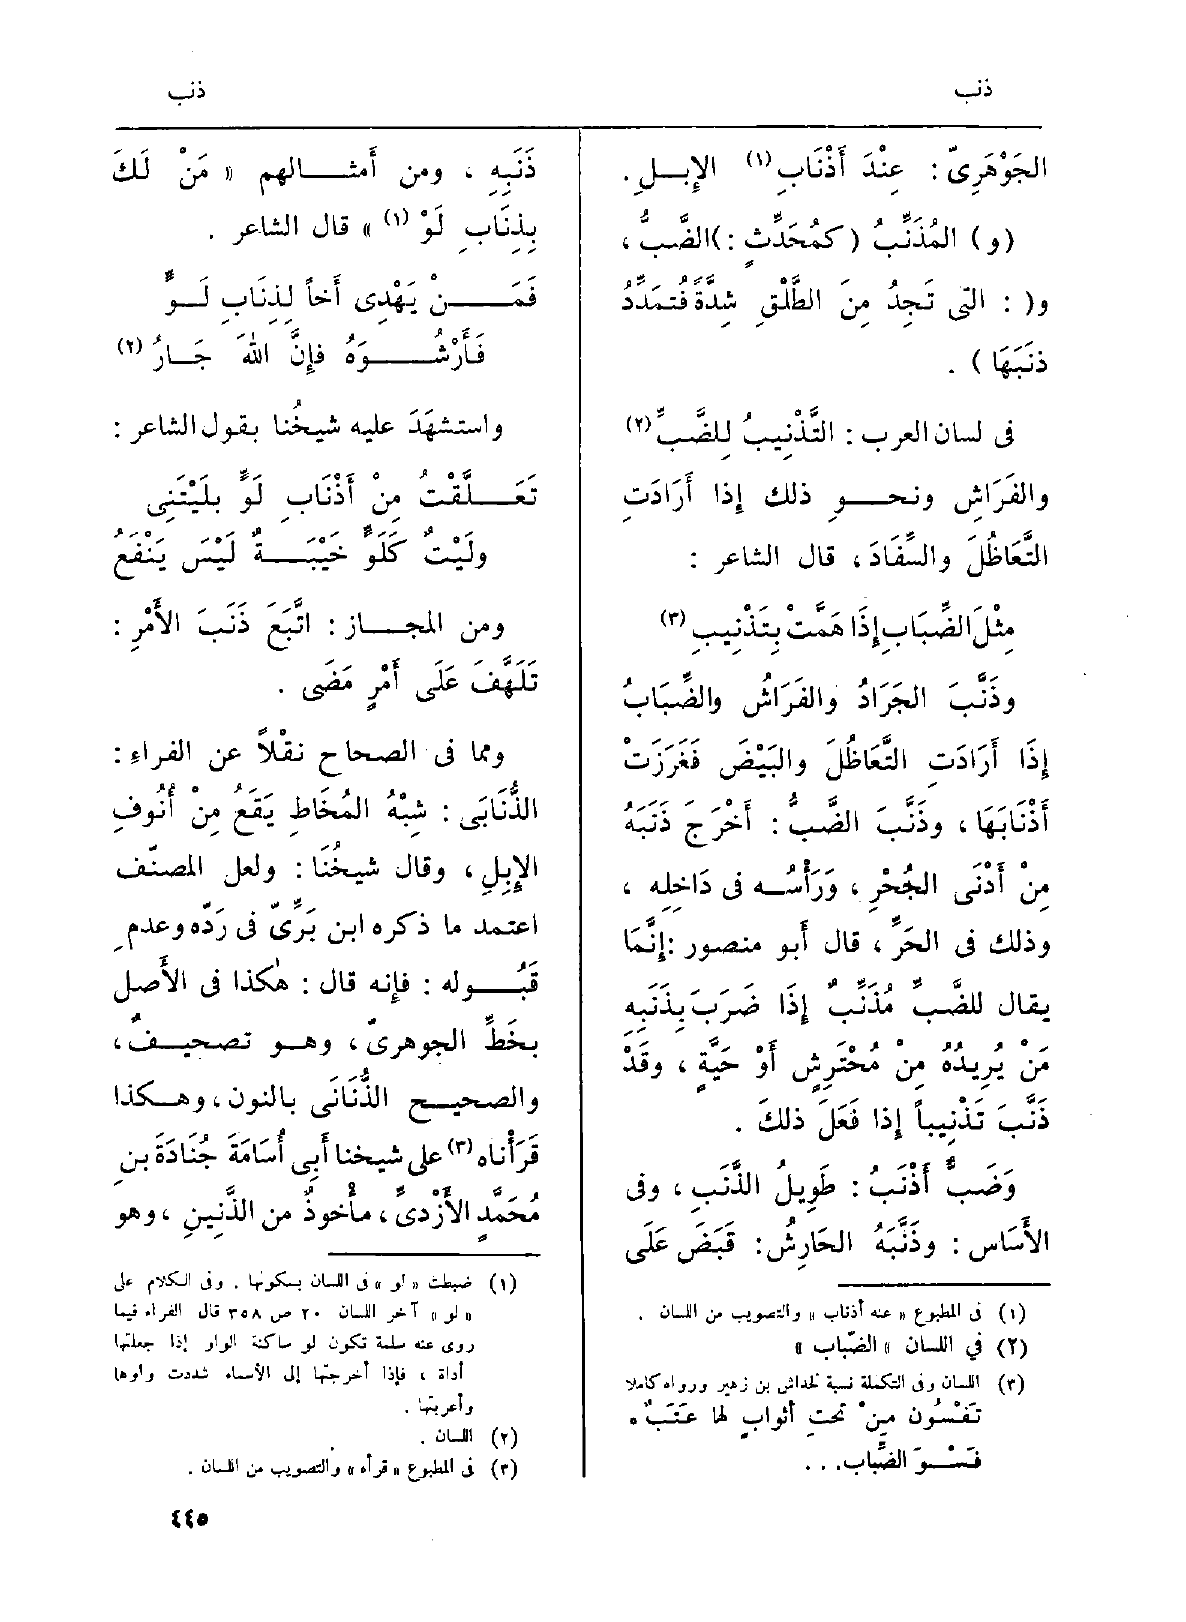 ذنب
ذنب
الجَوْهَرِىّ : عِنْدَ أَذْنَابِ (١) الإِبـلِ .
(و) المُذَنِّبُ (كمُحَدِّثٍ :) الضَّبُّ ،
و( : التى تَجِدُ مِنَ الطَّلْقِ شِدَّةً فتُمَدِّدُ
ذنَبَهَا ) .
فى لسان العرب : التَّذْنِيبُ لِلضَّبِّ (٢)
والفَرَاشِ ونحـوِ ذلك إِذا أَرَادَتِ
التَّعَاظُلَ والسِّفَادَ ، قال الشاعر :
مِثْلَ الضِّبَابِ إِذَا هَمَّتْ بِتَذْنِيبِ (٣)
وذَنَّبَ الجَرَادُ والفَرَاشُ والضِّبَابُ
إِذَا أَرَادَتِ التَّعَاظُلَ والبَيْضَ فَغَرَزَتْ
أَذْنَابَهَا ، وذَنَّبَ الضَّبُّ : أَخْرَجَ ذَنَبَهُ
مِنْ أَدْنَى الجُحْرِ ، وَرَأْسُـه فى دَاخِلِه ،
وذلك فى الحَرِّ ، قال أَبو منصور : إِنَّمَا
يقال للضَّبِّ مُذَنِّبٌ إِذَا ضَرَبَ بِذَنَبِهِ
مَنْ يُرِيدُهُ مِنْ مُحْتَرِشٍ أَوْ حَيَّةٍ ، وقَدْ
ذَنَّبَ تَذْنِيباً إِذا فَعَلَ ذلكَ .
وَضَبٌّ أَذْنَبُ : طَوِيلُ الذَّنَبِ ، وفى
الأَسَاس : وذَنَّبَهُ الحَارِشُ : قَبَضَ عَلَى
(١) فى المطبوع « عنه أذناب » والتصويب من اللسان .
(٢) في اللسان « الضِّباب »
(٣) اللسان وفى التكملة نسبة لخداش بن زهير ورواه كاملا
تَفْسُون مِنْ تحتِ أثوابٍ لها عَتَبٌ ه
فَـسْـوَ الضِّبابِ ...
ذَنَبِهِ ، ومن أَمثـالهم « مَنْ لَكَ
بِذِنَابِ لَوْ (١) » قال الشاعر .
فَمَـنْ يَهْدِى أَخاً لِذِنَابِ لَـوٍّ
فَأَرْشُـوَهُ فإِنَّ اللهَ جَـارُ (٢)
واستشهَدَ عليه شيخُنا بقول الشاعر :
تَعَـلَّقْتُ مِنْ أَذْنَابِ لَوٍّ بلَيْتَنِى
ولَيْتٌ كَلَوٍّ خَيْبَـةٌ لَيْسَ يَنْفَعُ
ومن المجـاز : اتَّبَعَ ذَنَبَ الأَمْرِ :
تَلَهَّفَ عَلَى أَمْرٍ مَضَى .
ومما فى الصحاح نقْلاً عن الفراءِ :
الذُّنَابَى : شِبْهُ المُخَاطِ يَقَعُ مِنْ أُنُوفِ
الإِبِلِ ، وقال شيخُنَا : ولعل المصنّف
اعتمد ما ذكره ابن بَرِّىّ فى رَدّه وعدم
قَبُـوله : فإِنه قال : هٰكذا فى الأَصل
بخَطِّ الجوهرىّ ، وهـو تصحيـفٌ ،
والصحيـح الذُّنَانَى بالنون ، وهـكذا
قَرَأْناه (٣) على شيخنا أَبى أُسَامَةَ جُنَادَةَ بنِ
مُحَمَّدٍ الأَزْدِىِّ ، مأْخوذٌ من الذَّنِينِ ، وهو
(١) ضبطت « لو » فى اللسان بسكونها . وفى الكلام على
« لو » آخر اللسان ٢٠ ص ٣٥٨ قال الفراء فيما
روى عنه سلمة تكون لو ساكنة الواو إذا جعلتها
أداة ، فإذا أخرجتها إلى الأسماء شددت واوها
وأعربتها .
(٢) اللسان .
(٣) فى المطبوع « قرأه » والتصويب من اللسان .
٤٤٥